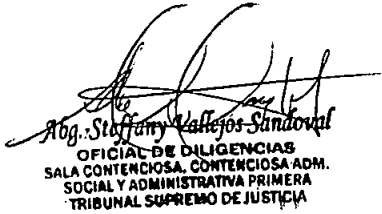 Abg. Steffany Vallejos Sandoval
OFICIAL DE DILIGENCIAS
SALA CONTENCIOSA, CONTENCIOSA ADM.
SOCIAL Y ADMINISTRATIVA PRIMERA
TRIBUNAL SUPREMO DE JUSTICIA